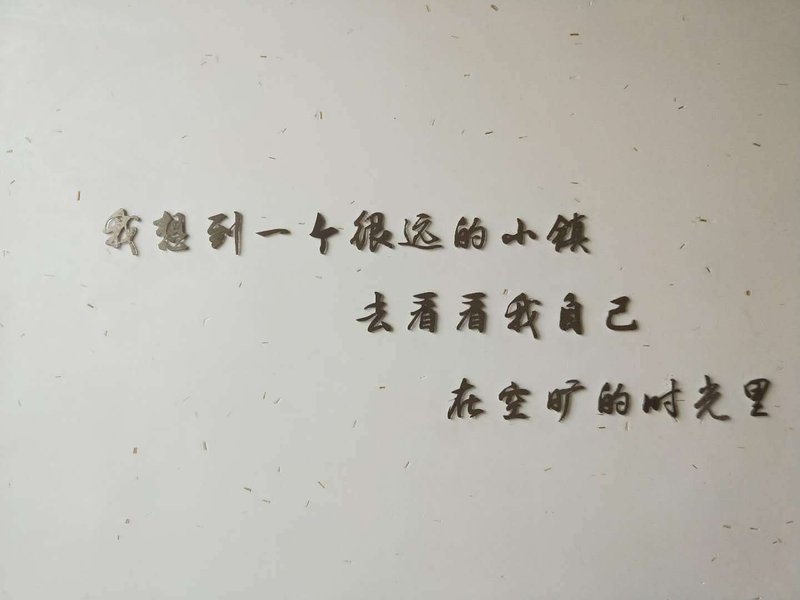 我想到一个很远的小镇
去看看我自己
在空旷的时光里